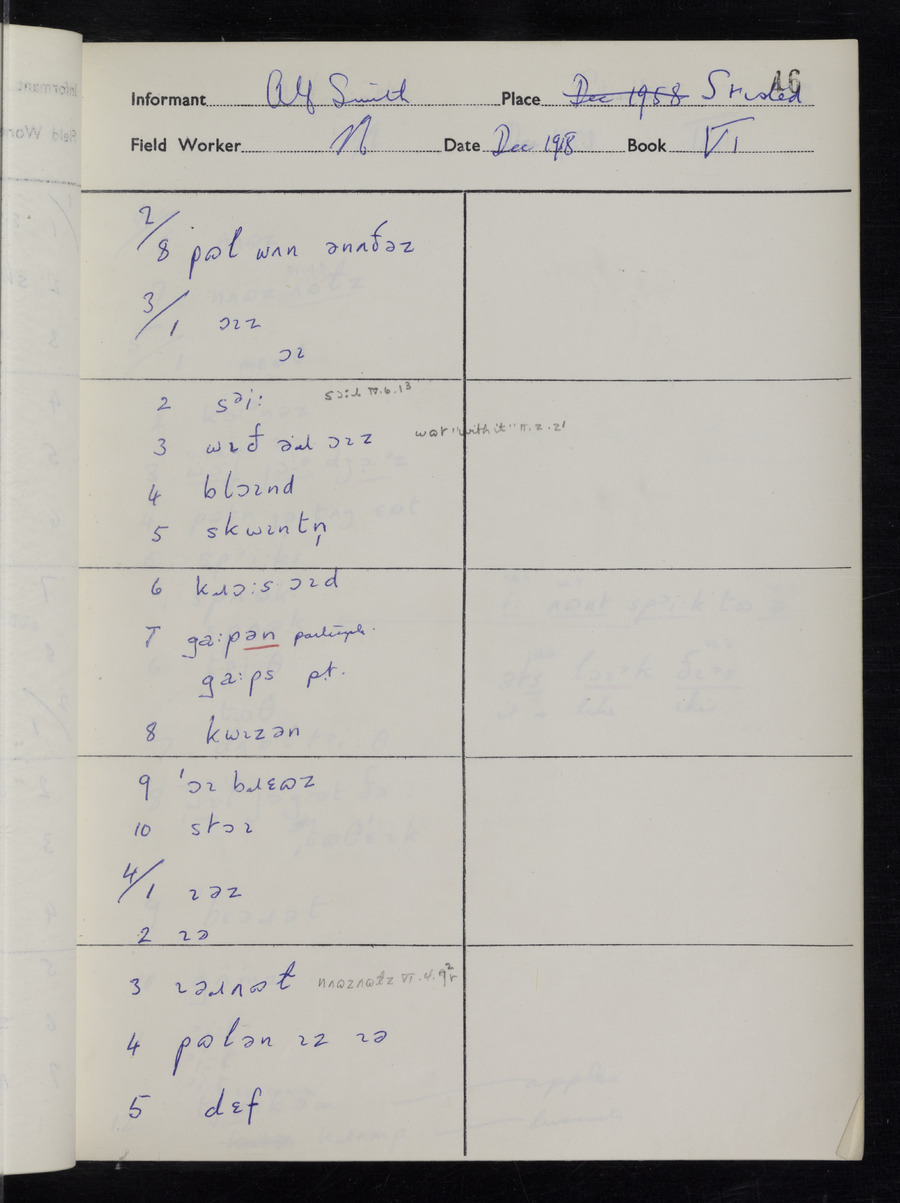 46
Informant Alf Smith Place Dec 1958 Stisted
Field Worker N Date Dec 1958 Book VI
2/8 pɷɫ wʌn ənʌðəz
3/1 ɔɪz
ɔɪ
2 səi: səiɫ IV.6.13
3 wɪð əɹɫ ɔɪz wɷt "with it" II.2.21
4 blɔɪnd
5 skwɪntn̩
6 kɹɔ:s ɔɪd
7 ga:pən participle.
ga:ps pt.
8 kwɪzən
9 'ɔɪ bɹɛɷz
10 stɔɪ
4/1 ɪəz
2 ɪə
3 ɪəɹʌɷt
4 pɷtən ɪz ɪə
5 dɛf